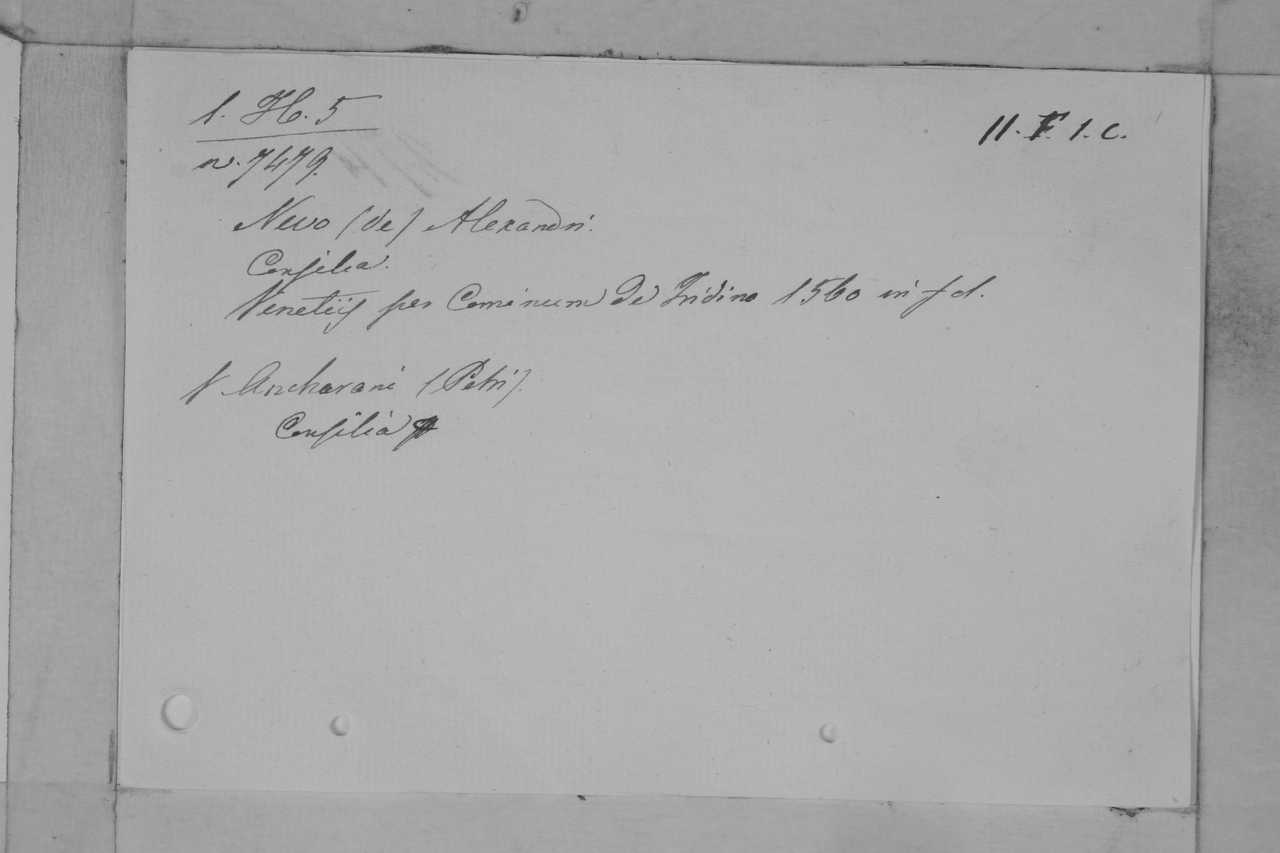 1. H. 5
11. F. 1. c.
n. 7479.
Nevo (de) Alexandri.
Consilia.
Venetiis per Cominum de Tridino 1560 in fol.
Ancharani (Petri).
Consilia